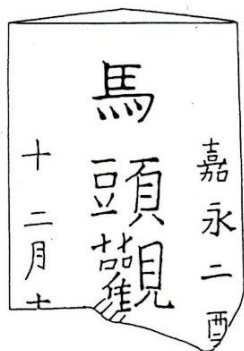 嘉永二酉
馬頭觀
十二月